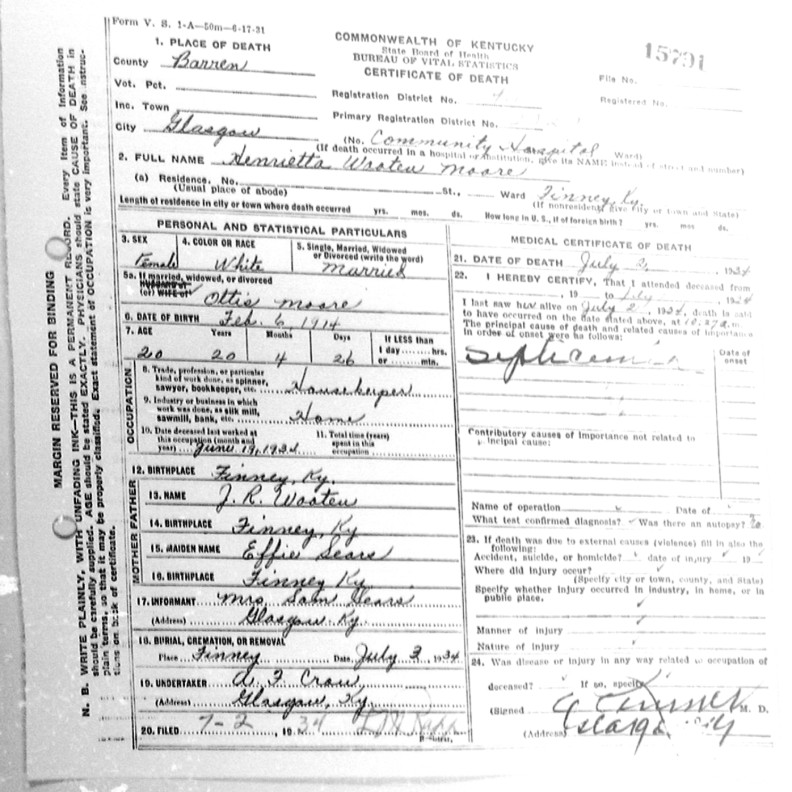 Form V. S. 1-A—50m—6-17-31
COMMONWEALTH OF KENTUCKY
State Board of Health
BUREAU OF VITAL STATISTICS
CERTIFICATE OF DEATH
15791
File No.
Registered No.
1. PLACE OF DEATH
County Barren
Vot. Pct.
Inc. Town
City Glasgow
Registration District No.
Primary Registration District No.
(No. Community Hospital Ward)
(If death occurred in a hospital or institution, give its NAME instead of street and number)
2. FULL NAME Henrietta Wooten Moore
(a) Residence. No. St., Ward Finney, Ky.
(Usual place of abode) (If nonresident give city or town and State)
Length of residence in city or town where death occurred yrs. mos. ds. How long in U. S., if of foreign birth? yrs. mos. ds.
PERSONAL AND STATISTICAL PARTICULARS
3. SEX Female
4. COLOR OR RACE White
5. Single, Married, Widowed or Divorced (write the word) Married
5a. If married, widowed, or divorced
HUSBAND of
(or) WIFE of Ottis Moore
6. DATE OF BIRTH Feb. 6, 1914
7. AGE Years Months Days If LESS than
20 20 4 26 1 day hrs.
or min.
OCCUPATION
8. Trade, profession, or particular
kind of work done, as spinner,
sawyer, bookkeeper, etc. Housekeeper
9. Industry or business in which
work was done, as silk mill,
sawmill, bank, etc. Home
10. Date deceased last worked at
this occupation (month and
year) June 19, 1934
11. Total time (years)
spent in this
occupation
12. BIRTHPLACE Finney, Ky.
FATHER
13. NAME J. R. Wooten
14. BIRTHPLACE Finney, Ky
MOTHER
15. MAIDEN NAME Effie Sears
16. BIRTHPLACE Finney Ky.
17. INFORMANT Mrs Sam Sears
(Address) Glasgow Ky.
18. BURIAL, CREMATION, OR REMOVAL
Place Finney Date July 2, 1934
19. UNDERTAKER A. F. Crow
(Address) Glasgow, Ky.
20. FILED 7-2 1934
Registrar.
MEDICAL CERTIFICATE OF DEATH
21. DATE OF DEATH July 2, 1934
22. I HEREBY CERTIFY, That I attended deceased from
, 19 to July , 1934
I last saw her alive on July 2, 1934, death is said
to have occurred on the date stated above, at
The principal cause of death and related causes of importance
in order of onset were as follows:
Date of
onset
Septicemia
Contributory causes of importance not related to
principal cause:
Name of operation Date of
What test confirmed diagnosis? Was there an autopsy? No
23. If death was due to external causes (violence) fill in also the
following:
Accident, suicide, or homicide? date of injury 19
Where did injury occur?
(Specify city or town, county, and State)
Specify whether injury occurred in industry, in home, or in
public place.
Manner of injury
Nature of injury
24. Was disease or injury in any way related to occupation of
deceased? If so, specify
(Signed M. D.
(Address)
MARGIN RESERVED FOR BINDING
N. B. WRITE PLAINLY, WITH UNFADING INK—THIS IS A PERMANENT RECORD. Every item of information
should be carefully supplied. AGE should be stated EXACTLY. PHYSICIANS should state CAUSE OF DEATH in
plain terms, so that it may be properly classified. Exact statement of OCCUPATION is very important. See instruc-
tions on back of certificate.